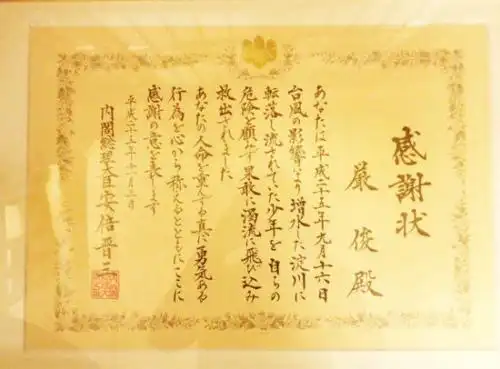 感謝状
厳俊殿
あなたは平成二十五年九月十六日
台風の影響により増水した淀川に
転落し流されていた少年を自らの
危険を顧みず果敢に濁流に飛び込み
救出されました
あなたの人命を重んずる真に勇気ある
行為を心から称えるとともにここに
感謝の意を表します
平成二十五年十一月
内閣総理大臣安倍晋三